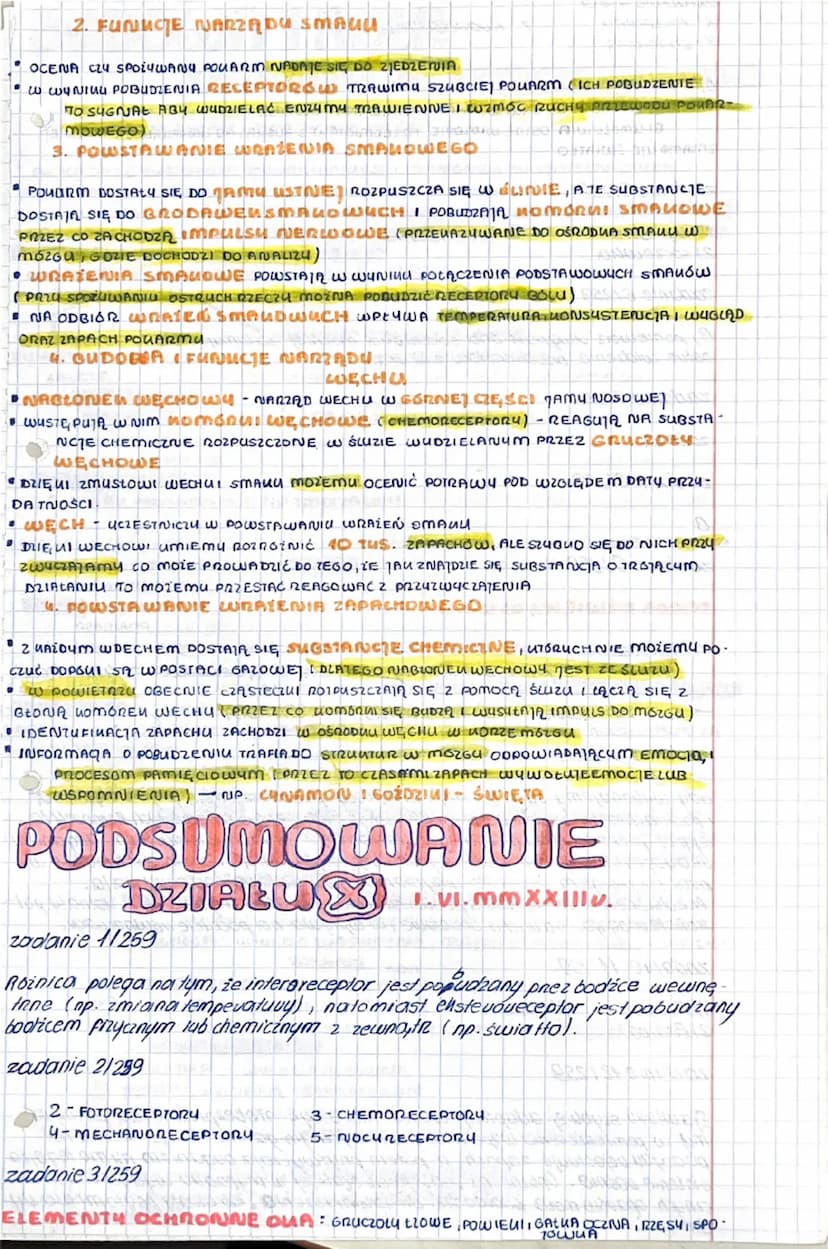 2. FUNKCJE NARZĄDU SMAKU
• OCENA CZY SPOŻYWANY POKARM NADAJE SIĘ DO ZJEDZENIA
• W WYNIKU POBUDZENIA RECEPTORÓW TRAWIMY SZYBCIEJ POKARM (ICH POBUDZENIE
TO SYGNAŁ ABY WYDZIELAĆ ENZYMY TRAWIENNE I WZMÓC RUCHY PRZEWODU POKAR-
MOWEGO)
3. POWSTAWANIE WRAŻENIA SMAKOWEGO
• POKARM DOSTAŁY SIĘ DO JAMY USTNEJ ROZPUSZCZA SIĘ W ŚLINIE, A TE SUBSTANCJE
DOSTAJĄ SIĘ DO BRODAWEK SMAKOWYCH I POBUDZAJĄ KOMÓRKI SMAKOWE
PRZEZ CO ZACHODZĄ IMPULSY NERWOWE (PRZEKAZYWANE DO OŚRODKA SMAKU W
MÓZGU, GDZIE DOCHODZI DO ANALIZY)
• WRAŻENIA SMAKOWE POWSTAJĄ W WYNIKU POŁĄCZENIA PODSTAWOWYCH SMAKÓW
(PRZY SPOŻYWANIU OSTRYCH RZECZY MOŻNA POBUDZIĆ RECEPTORY BÓLU)
• NA ODBIÓR WRAŻEŃ SMAKOWYCH WPŁYWA TEMPERATURA, KONSYSTENCJA I WYGLĄD
ORAZ ZAPACH POKARMU
4. BUDOWA I FUNKCJE NARZĄDU
WĘCHU
• NABŁONEK WĘCHOWY - NARZĄD WĘCHU W GÓRNEJ CZĘŚCI JAMY NOSOWEJ
• WYSTĘPUJĄ W NIM KOMÓRKI WĘCHOWE (CHEMORECEPTORY) - REAGUJĄ NA SUBSTA-
NCJE CHEMICZNE ROZPUSZCZONE W ŚLUZIE WYDZIELANYM PRZEZ GRUCZOŁY
WĘCHOWE
• DZIĘKI ZMYSŁOWI WĘCHU I SMAKU MOŻEMY OCENIĆ POTRAWY POD WZGLĘDEM DATY PRZY-
DATNOŚCI.
• WĘCH - UCZESTNICZY W POWSTAWANIU WRAŻEŃ SMAKU
• DZIĘKI WĘCHOWI UMIEMY ROZRÓŻNIĆ 10 TYS. ZAPACHÓW, ALE SZYBKO SIĘ DO NICH PRZY
ZWYCZAJAMY CO MOŻE PROWADZIĆ DO TEGO, ŻE JAK ZNAJDZIE SIĘ SUBSTANCJA O TRUJĄCYM
DZIAŁANIU TO MOŻEMY PRZESTAĆ REAGOWAĆ Z PRZYZWYCZAJENIA
4. POWSTAWANIE WRAŻENIA ZAPACHOWEGO
• Z KAŻDYM WDECHEM DOSTAJĄ SIĘ SUBSTANCJE CHEMICZNE, KTÓRYCH NIE MOŻEMY PO-
CZUĆ DOPÓKI SĄ W POSTACI GAZOWEJ (DLATEGO NABŁONEK WĘCHOWY JEST ZE ŚLUZU)
• W POWIETRZU OBECNIE CZĄSTECZKI ROZPUSZCZAJĄ SIĘ Z POMOCĄ ŚLUZU I ŁĄCZĄ SIĘ Z
BŁONĄ KOMÓREK WĘCHU (PRZEZ CO KOMÓRKI SIĘ BUDZĄ I WYSYŁAJĄ IMPULS DO MÓZGU)
• IDENTYFIKACJA ZAPACHU ZACHODZI W OŚRODKU WĘCHU W KORZE MÓZGU
• INFORMACJA O POBUDZENIU TRAFIA DO STRUKTUR W MÓZGU ODPOWIADAJĄCYM EMOCJĄ, I
PROCESOM PAMIĘCIOWYM (PRZEZ TO CZASAMI ZAPACH WYWOŁUJE EMOCJE LUB
WSPOMNIENIA) → NP. CYNAMON I GOŹDZIKI - ŚWIĘTA
PODSUMOWANIE
DZIAŁU X 1.VI.MMXXIIIV.
zadanie 1/259
Różnica polega na tym, że interoreceptor jest pobudzany przez bodźce wewnę-
trzne (np. zmiana temperatury), natomiast eksteroreceptor jest pobudzany
bodźcem fizycznym lub chemicznym z zewnątrz (np. światło).
zadanie 2/259
2 - FOTORECEPTORY 3 - CHEMORECEPTORY
4 - MECHANORECEPTORY 5 - NOCYRECEPTORY
zadanie 3/259
ELEMENTY OCHRONNE OKA: GRUCZOŁY ŁZOWE, POWIEKI, GAŁKA OCZNA, RZĘSY, SPO-
JÓWKA